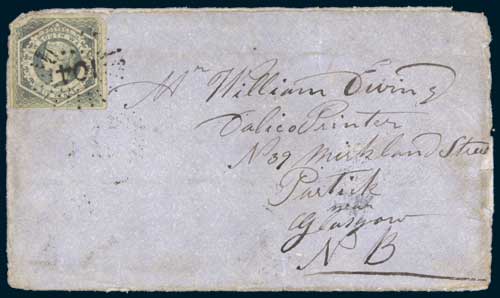 Mr William Ewing
Calico Printer
No 39 Mirkland Street
Partick
near
Glasgow
N B